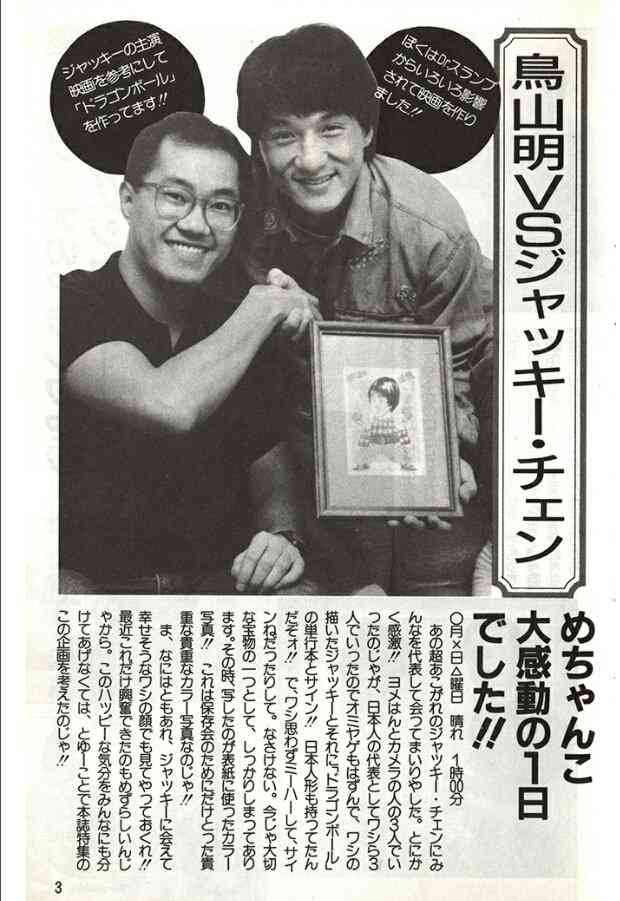 鳥山明VSジャッキー・チェン
ぼくはDr.スランプ
からいろいろ影響
されて映画を作り
ました!!
ジャッキーの主演
映画を参考にして
「ドラゴンボール」
を作ってます!!
めちゃんこ
大感動の1日
でした!!
〇月×日△曜日 晴れ 1時00分
あの超あこがれのジャッキー・チェンにみ
んなを代表して会ってまいりやした。とにか
く感激!! ヨメはんとカメラの人の3人でい
ったのじゃが、日本人の代表としてワシら3
人でいったのでオミヤゲもはずんで、ワシの
描いたジャッキーとそれに『ドラゴンボール』
の単行本とサイン!! 日本人形も持ってたん
だぞォ!! で、ワシ思わずミーハーして、サイ
ンねだったりして。なさけない。今じゃ大切
な宝物の一つとして、しっかりしまってあり
ます。その時、写したのが表紙に使ったカラー
写真!! これは保存会のためにだけとった貴
重な貴重なカラー写真なのじゃ!!
ま、なにはともあれ、ジャッキーに会えて
幸せそうなワシの顔でも見てやっておくれ!!
最近これだけ興奮できたのもめずらしいんじ
ゃから。このハッピーな気分をみんなにも分
けてあげなくては、とゆーことで本誌特集の
この企画を考えたのじゃ!!
3